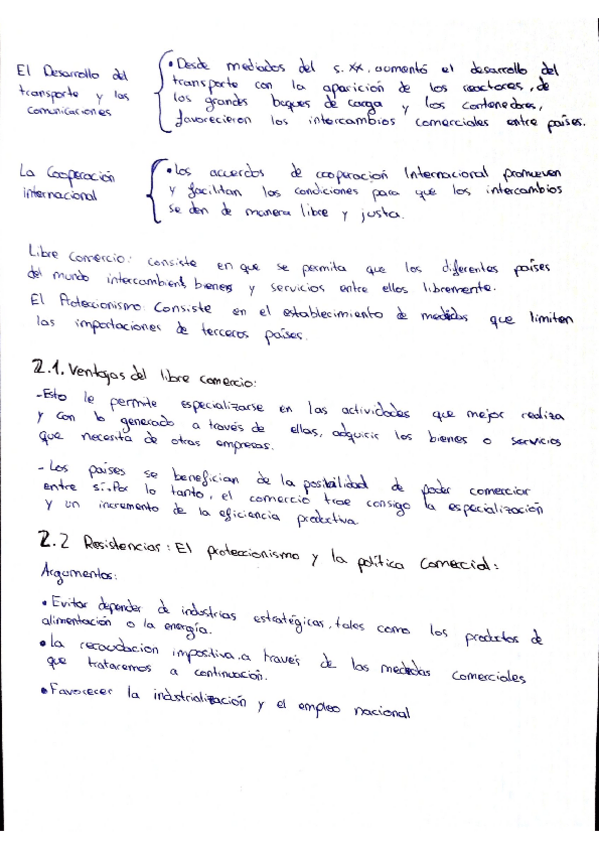 El Desarrollo del
transporte y las
comunicaciones
• Desde mediados del s.XX, aumentó el desarrollo del
transporte con la aparición de los reactores, de
los grandes buques de carga y los contenedores,
favorecieron los intercambios comerciales entre países.
La Cooperación
internacional
• Los acuerdos de cooperación Internacional promueven
y facilitan las condiciones para que los intercambios
se den de manera libre y justa.
Libre Comercio: consiste en que se permita que los diferentes países
del mundo intercambien bienes y servicios entre ellos libremente.
El Proteccionismo: Consiste en el establecimiento de medidas que limiten
las importaciones de terceros países.
2.1. Ventajas del libre comercio:
- Esto le permite especializarse en las actividades que mejor realiza
y con lo generado a través de ellas, adquirir los bienes o servicios
que necesita de otras empresas.
- Los países se benefician de la posibilidad de poder comerciar
entre sí. Por lo tanto, el comercio trae consigo la especialización
y un incremento de la eficiencia productiva.
2.2 Resistencias: El proteccionismo y la política comercial:
Argumentos:
• Evitar depender de industrias estratégicas, tales como los productos de
alimentación o la energía.
• La recaudacion impositiva, a través de las medidas comerciales
que trataremos a continuación.
• Favorecer la industrialización y el empleo nacional